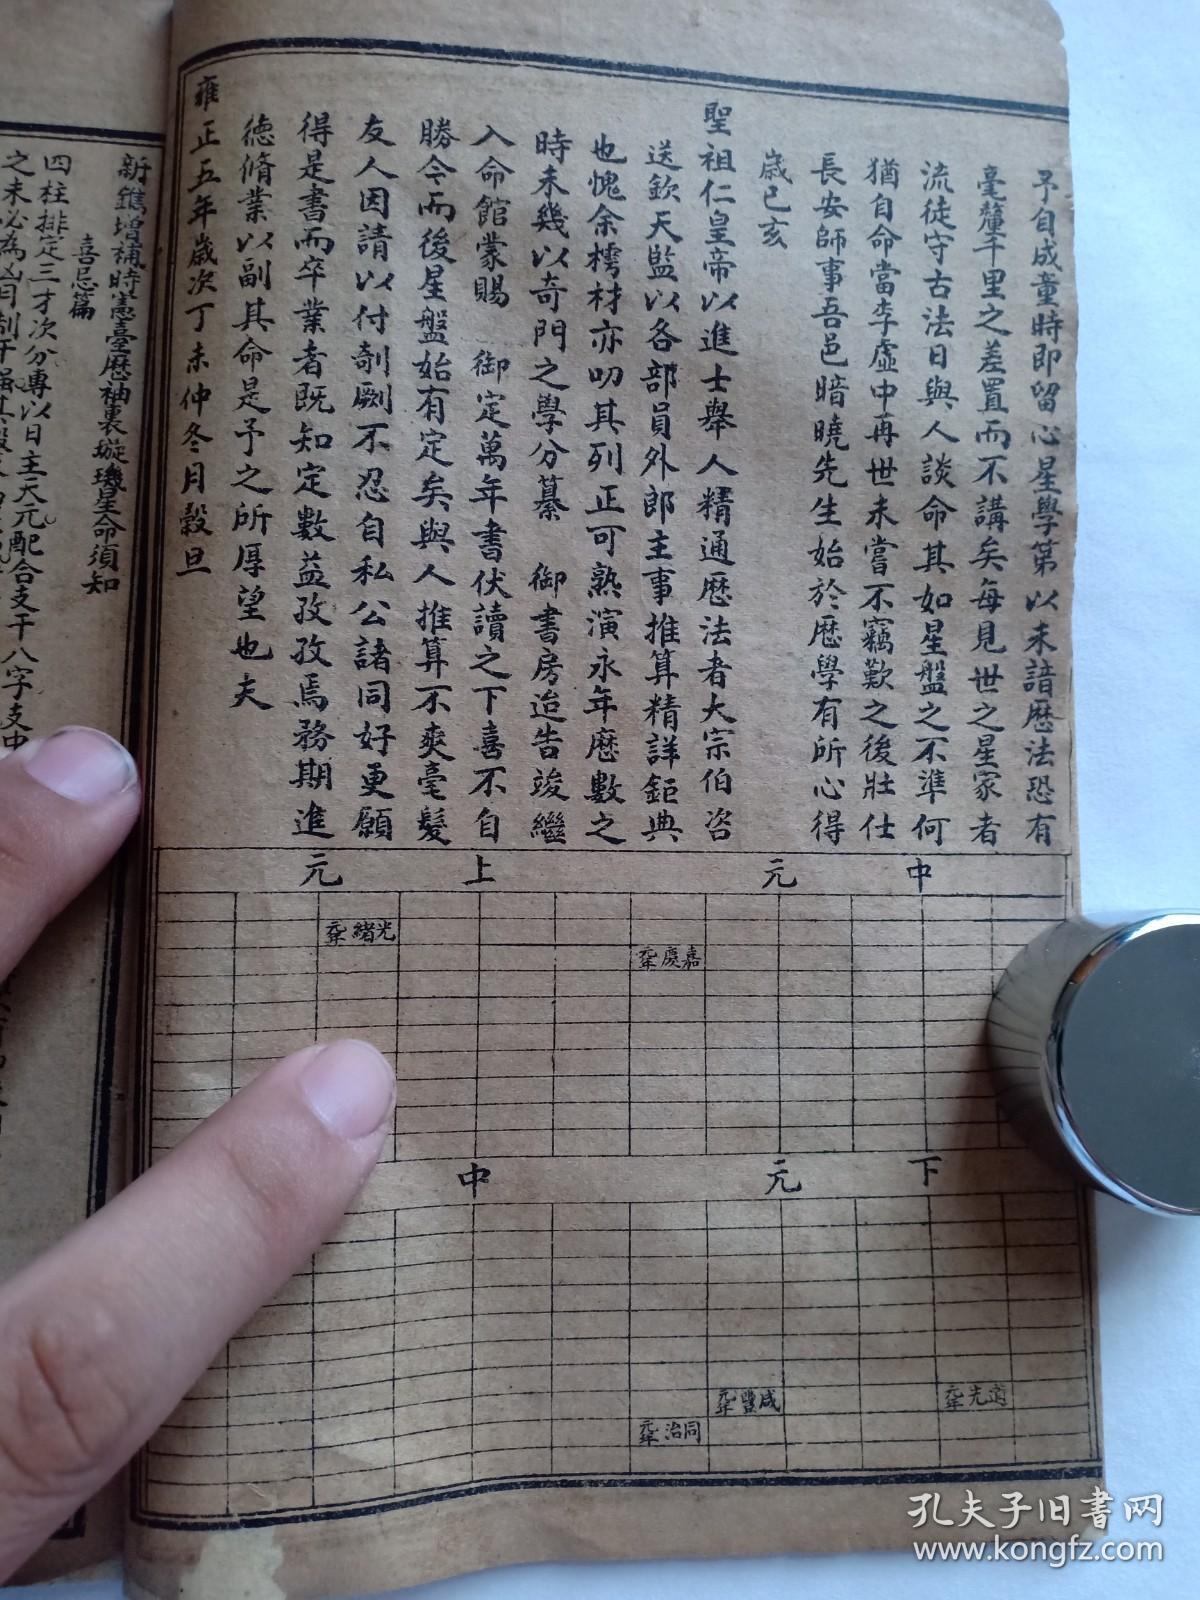 予自成童時即留心星學第以未諳歷法恐有
毫釐千里之差置而不講矣每見世之星家者
流徒守古法日與人談命其如星盤之不準何
猶自命當李虛中再世未嘗不竊歎之後壯仕
長安師事吾邑暗曉先生始於歷學有所心得
歲已亥
聖祖仁皇帝以進士舉人精通歷法者大宗伯咨
送欽天監以各部員外郎主事推算精詳鉅典
也愧余樗材亦叨其列正可熟演永年歷數之
時未幾以奇門之學分纂 御書房迨告竣繼
入命館蒙賜 御定萬年書伏讀之下喜不自
勝今而後星盤始有定矣與人推算不爽毫髮
友人因請以付剞劂不忍自私公諸同好更願
得是書而卒業者既知定數益孜孜焉務期進
德脩業以副其命是予之所厚望也夫
雍正五年歲次丁未仲冬月穀旦
中 元 上 元
嘉慶元年
光緒元年
下 元 中
道光元年
咸豐元年
同治元年
新鐫增補時憲臺歷袖裏璇璣星命須知
喜忌篇
四柱排定三才次分專以日主天元配合支干八字支中
孔夫子旧書网
www.kongfz.com